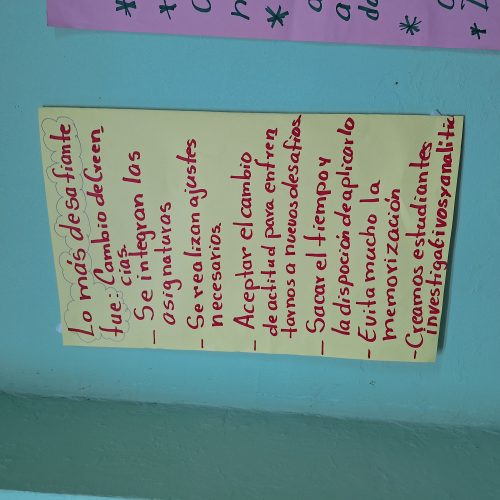 Lo más desafiante
fue: Cambio de Creen
cias.
- Se integran las
asignaturas
- Se realizan ajustes
necesarios.
- Aceptar el cambio
de actitud para enfren
tarnos a nuevos desafios
- Sacar el tiempo y
la dispoción de aplicarlo
- Evita mucho la
memorización
- Creamos estudiantes
investigativos y analitic